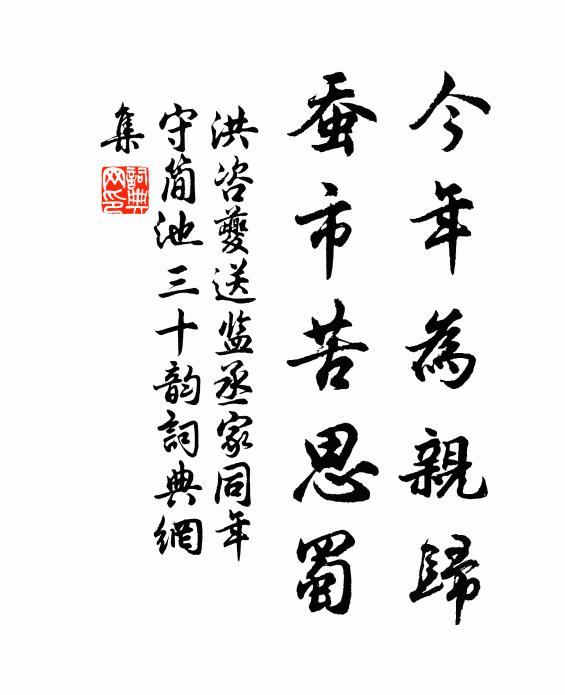 今年為親歸
蚕市苦思蜀
洪咨夔送监丞家同年
守简池三十韵詞典網
集
詞典
网印